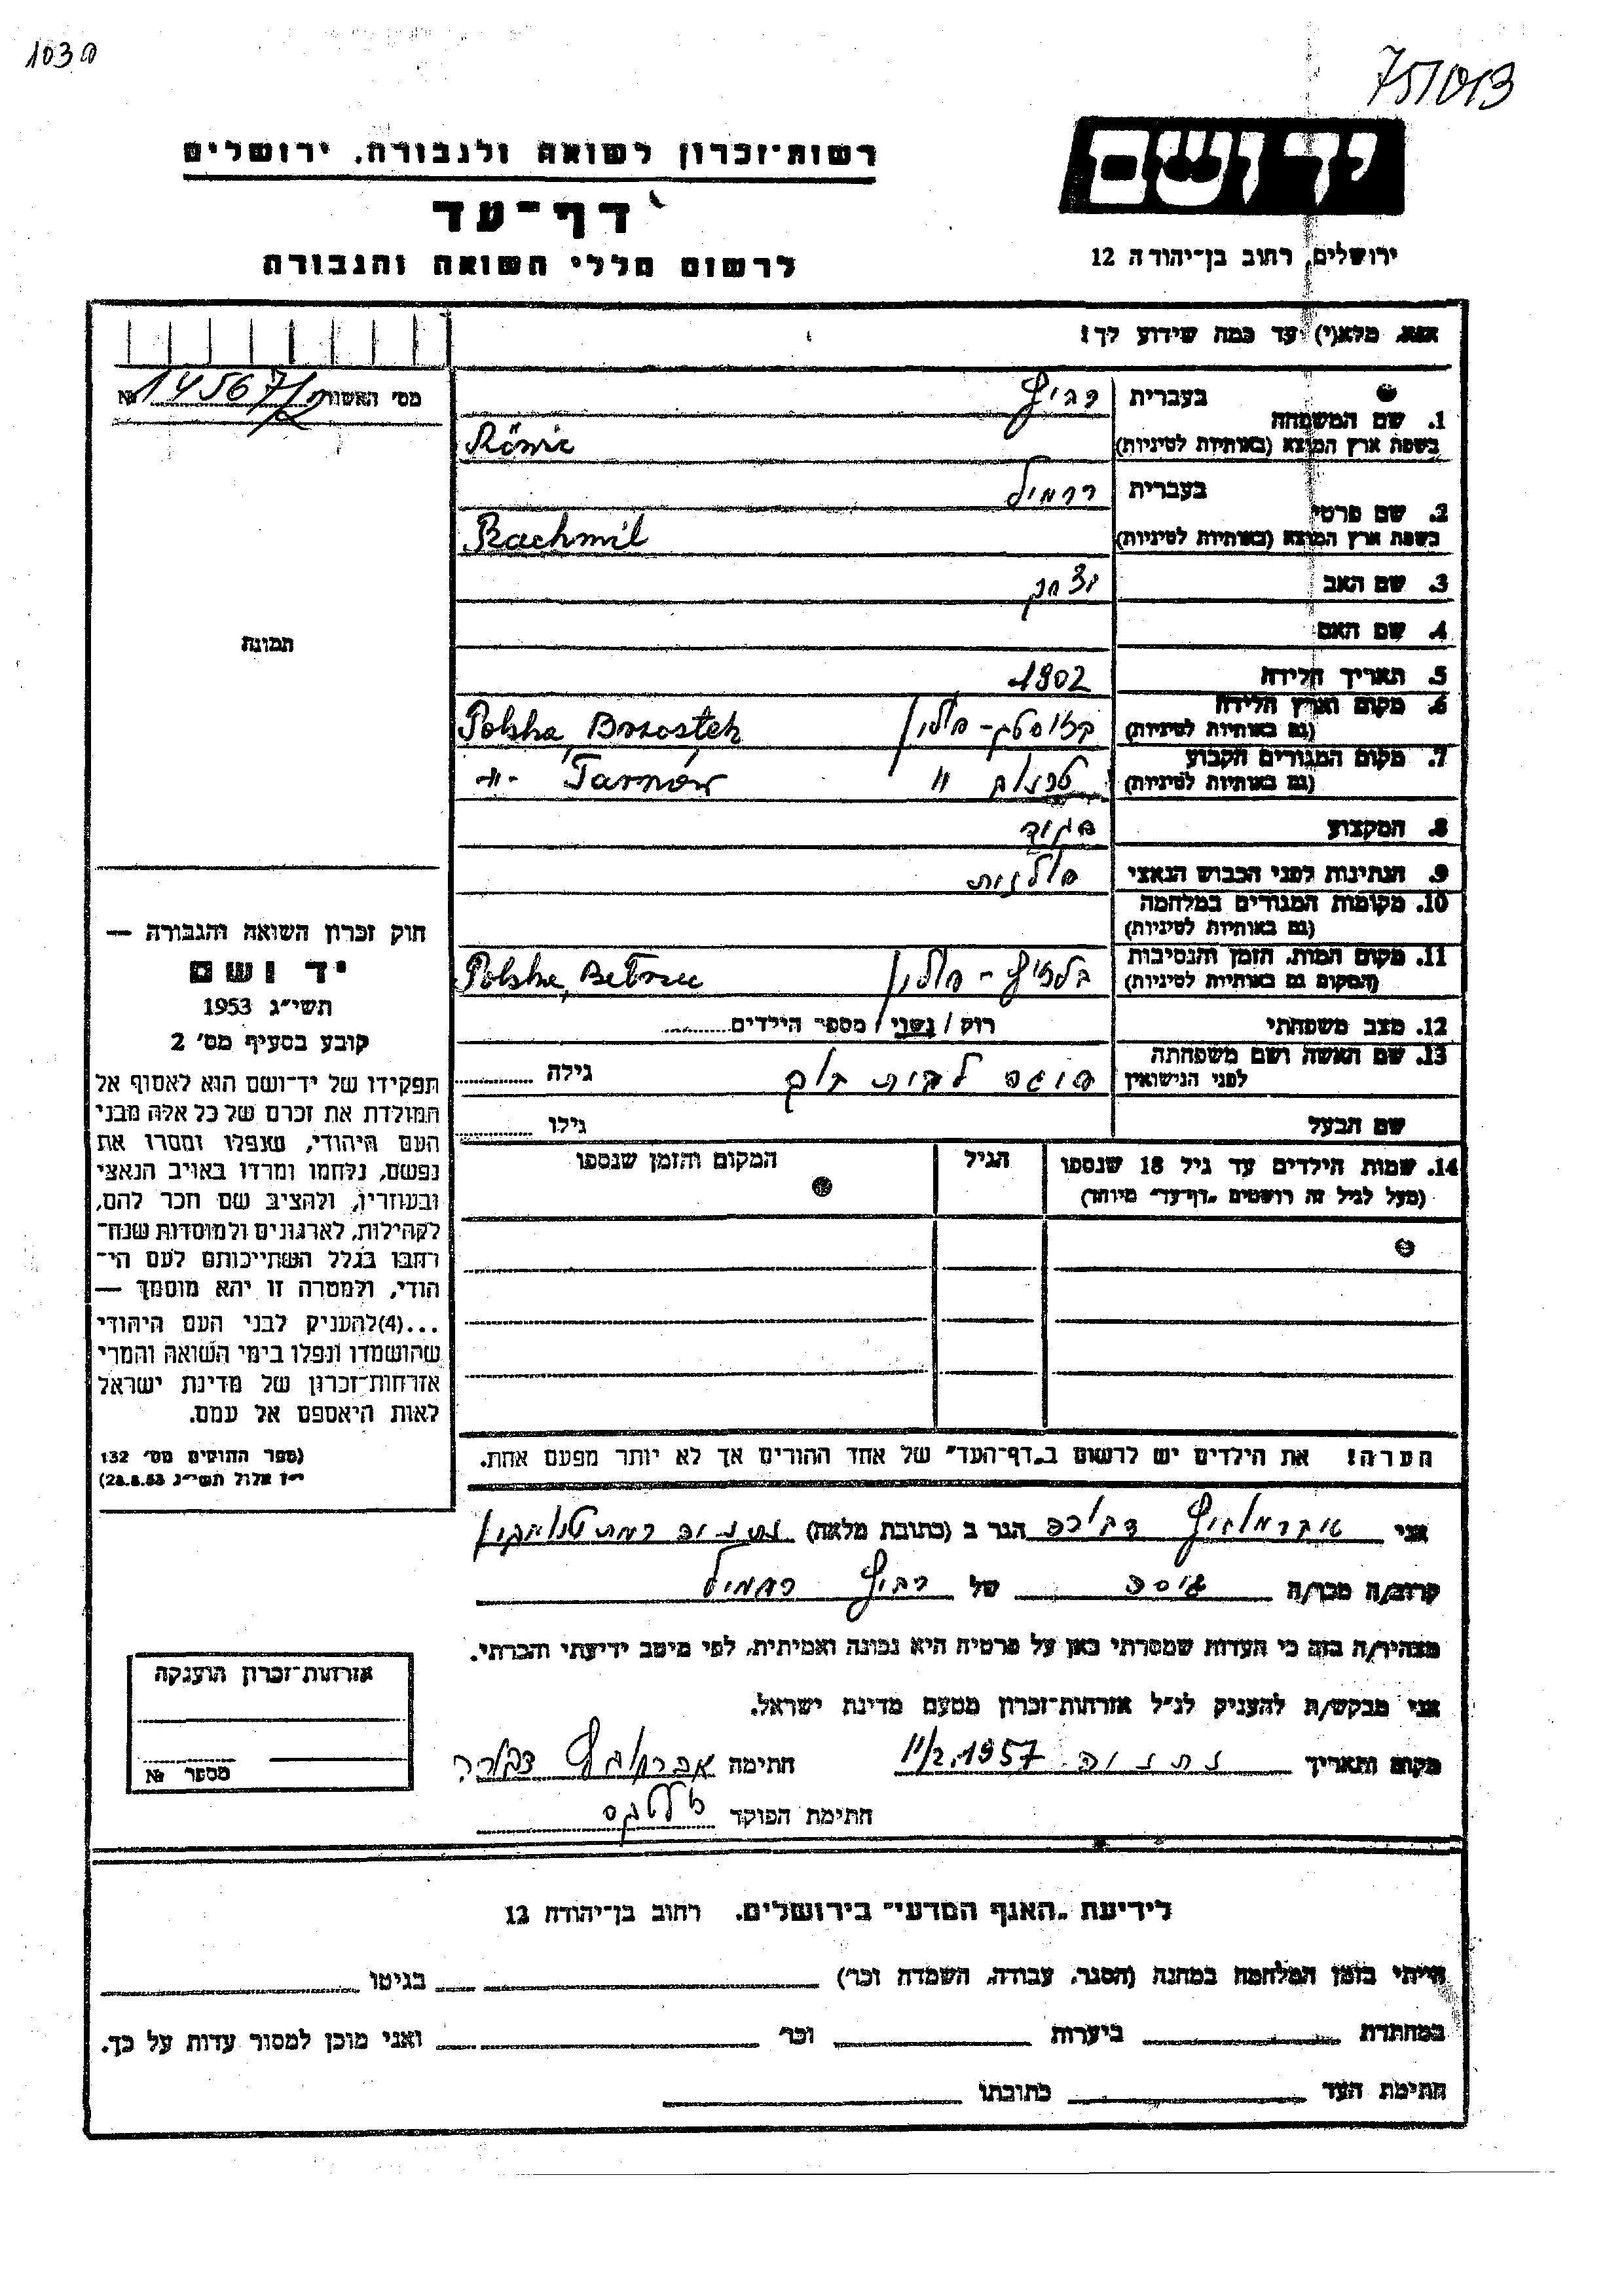 103
75/013
ידושם
רשות־זכרון לשואה ולגבורה, ירושלים
דף־עד
לרשום חללי השואה והגבורה
ירושלים, רחוב בן־יהודה 12
אנא, מלא(י) עד כמה שידוע לך!
מס׳ האשור № 14567/
1. שם המשפחה
בעברית
בשפת ארץ המוצא (באותיות לטיניות)
2. שם פרטי
בעברית רחמיל
בשפת ארץ המוצא (באותיות לטיניות) Rachmil
3. שם האב יצחק
4. שם האם
5. תאריך הלידה 1902
6. מקום וארץ הלידה
(גם באותיות לטיניות) פולין Polska, Brzostek
7. מקום המגורים הקבוע
(גם באותיות לטיניות) " -"- Tarnów
8. המקצוע
9. הנתינות לפני הכבוש הנאצי פולנית
10. מקומות המגורים במלחמה
(גם באותיות לטיניות)
11. מקום המות, הזמן והנסיבות
(המקום גם באותיות לטיניות) פולין Polska, Bełzec
12. מצב משפחתי רוק / נשוי / מספר הילדים
13. שם האשה ושם משפחתה
לפני הנישואין לבית גילה
שם הבעל גילו
14. שמות הילדים עד גיל 18 שנספו
(מעל לגיל זה רושמים „דף־עד״ מיוחד)
הגיל
המקום והזמן שנספו
תמונה
חוק זכרון השואה והגבורה —
יד ושם
תשי״ג 1953
קובע בסעיף מס׳ 2
תפקידו של יד־ושם הוא לאסוף אל
המולדת את זכרם של כל אלה מבני
העם היהודי, שנפלו ומסרו את
נפשם, נלחמו ומרדו באויב הנאצי
ובעוזריו, ולהציב שם וזכר להם,
לקהילות, לארגונים ולמוסדות שנח־
רבו בגלל השתייכותם לעם הי־
הודי, ולמטרה זו יהא מוסמך —
...(4)להעניק לבני העם היהודי
שהושמדו ונפלו בימי השואה והמרי
אזרחות־זכרון של מדינת ישראל
לאות היאספם אל עמם.
(ספר החוקים מס׳ 132
י״ז אלול תשי״ג 28.8.53)
הערה! את הילדים יש לרשום ב„דף־העד״ של אחד ההורים אך לא יותר מפעם אחת.
אני דבורה הגר ב (כתובת מלאה) נתניה
קרוב/ה מכר/ה גיסה של רחמיל
מצהיר/ה בזה כי העדות שמסרתי כאן על פרטיה היא נכונה ואמיתית, לפי מיטב ידיעתי והכרתי.
אני מבקש/ת להעניק לנ״ל אזרחות־זכרון מטעם מדינת ישראל.
מקום ותאריך נתניה 11/2.1957 חתימה דבורה
חתימת הפוקד
אזרחות־זכרון הוענקה
מספר №
לידיעת „האגף המדעי״ בירושלים, רחוב בן־יהודה 12
הייתי בזמן המלחמה במחנה (הסגר, עבודה, השמדה וכו׳) בגיטו
במחתרת ביערות וכו׳ ואני מוכן למסור עדות על כך.
חתימת העד כתובתו